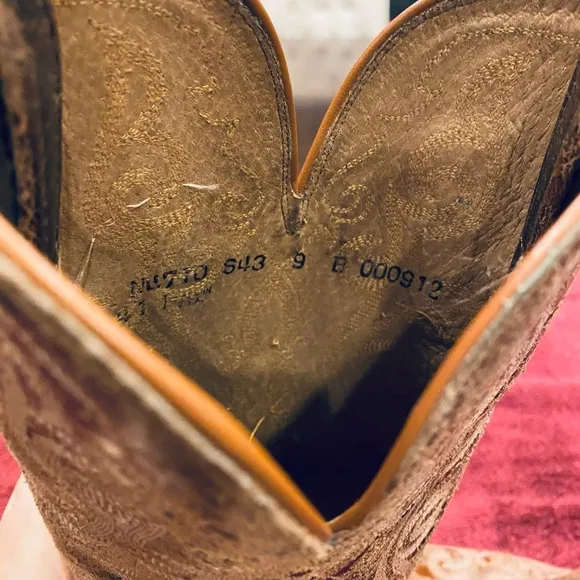 N4710 S43 9 B 000912